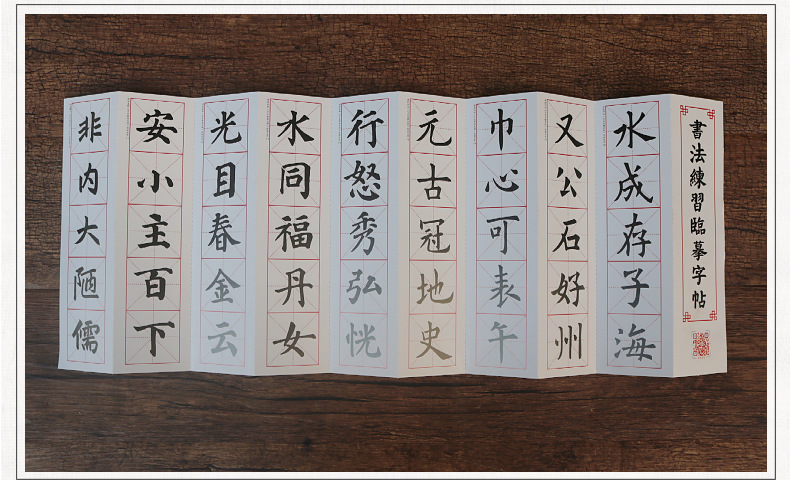 書法練習臨摹字帖
水成存子海
又公石好州
巾心可表午
元古冠地史
行怒秀弘恍
水同福丹女
光目春金云
安小主百下
非内大陋儒